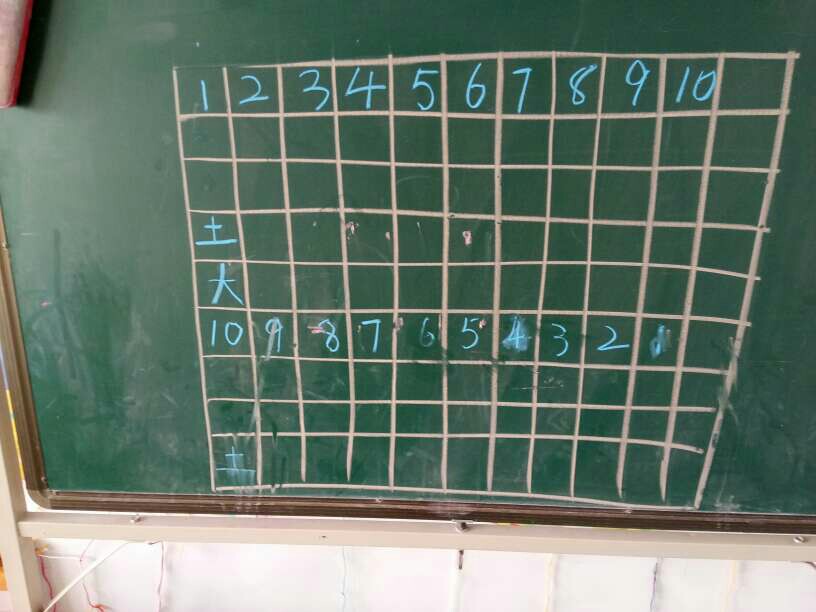 1 2 3 4 5 6 7 8 9 10
土
大
10 9 8 7 6 5 4 3 2 1
土